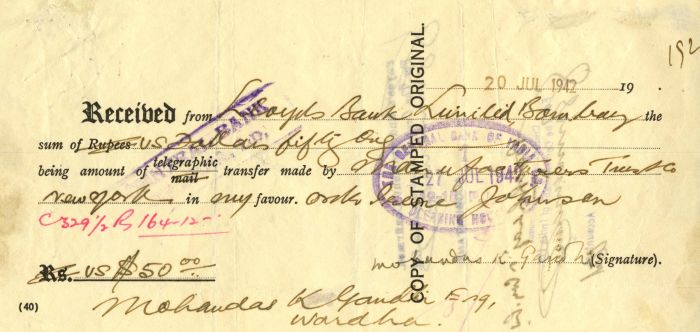 192
20 JUL 1942 19
Received from Lloyds Bank Limited Bombay the
sum of Rupees US Dollars fifty
being amount of telegraphic mail transfer made by Manufacturers Trust Co
New York in my favour. o/o Johnson
C 329½ Rs 164-12-
Rs. US $50 00
Mohandas K. Gandhi (Signature).
(40)
Mohandas K Gandhi Esq,
Wardha.
COPY OF STAMPED ORIGINAL.
THE CENTRAL BANK OF INDIA
21 JUL 1942
CLEARING
BANK